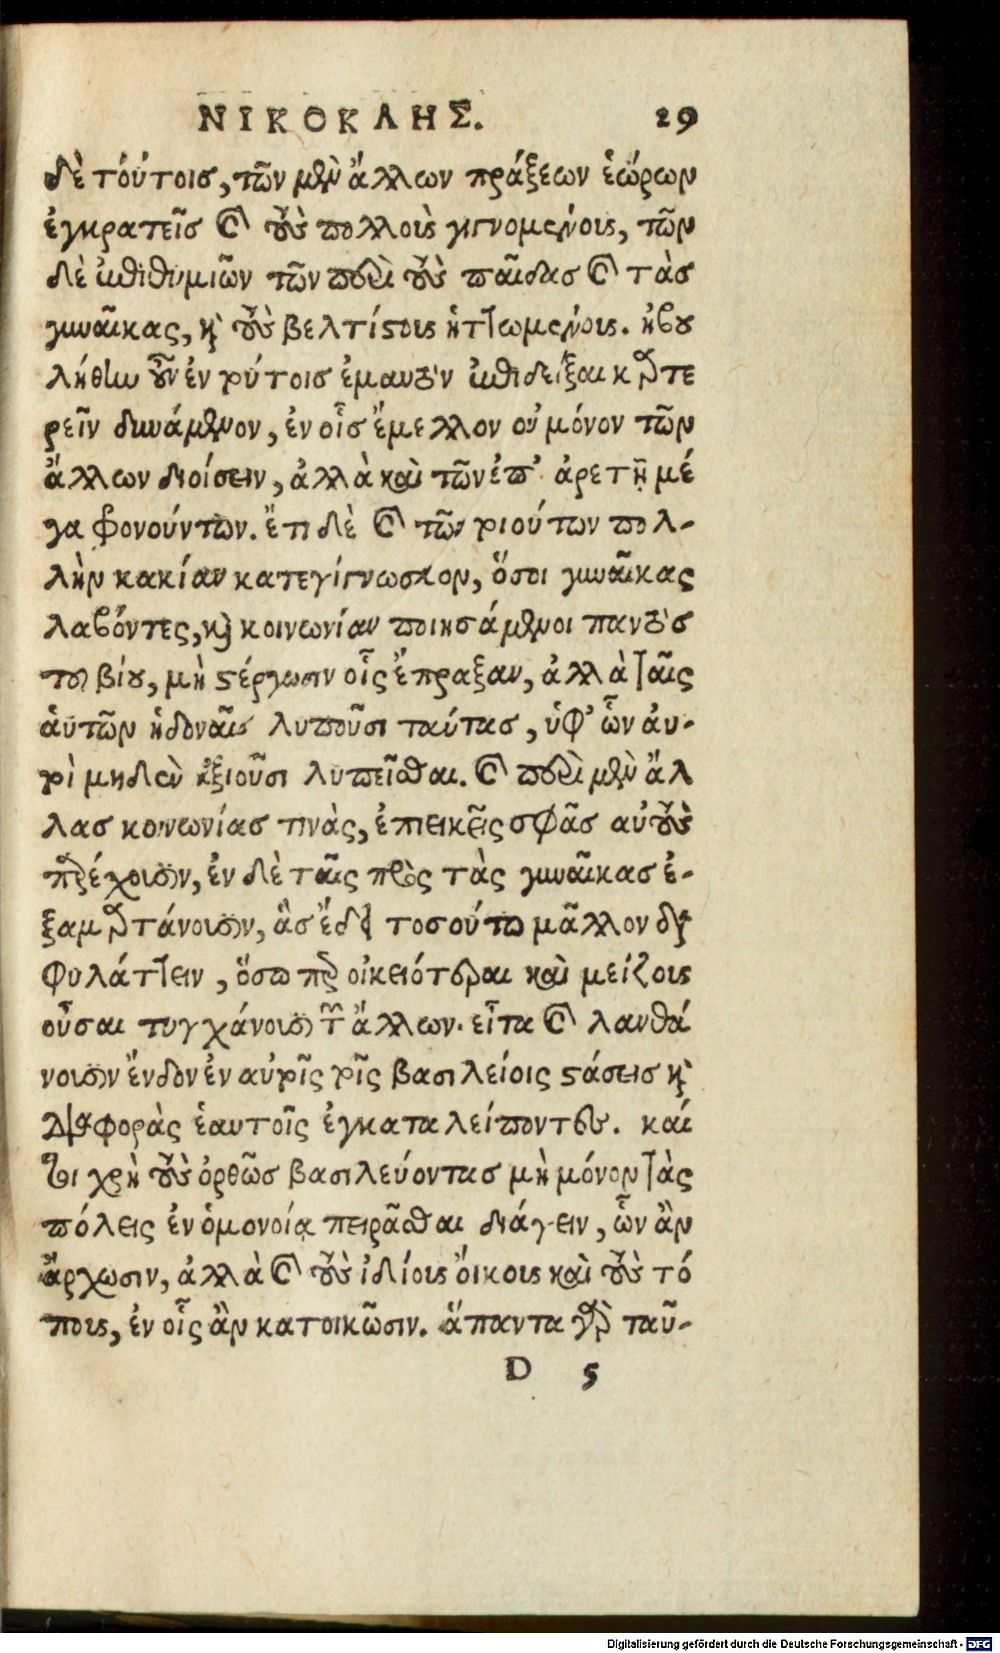 ΝΙΚΟΚΛΗΣ. 29
δὲ τούτοις, τῶν μὲν ἄλλων πράξεων ἑώρων
ἐγκρατεῖς καὶ τοὺς πολλοὺς γιγνομένους, τῶν
δὲ ἐπιθυμιῶν τῶν περὶ τοὺς παῖδας καὶ τὰς
γυναῖκας, καὶ τοὺς βελτίστους ἡττωμένους. ἠβου
λήθην οὖν ἐν τούτοις ἐμαυτὸν ἐπιδεῖξαι καρτε
ρεῖν δυνάμενον, ἐν οἷς ἔμελλον οὐ μόνον τῶν
ἄλλων διοίσειν, ἀλλὰ καὶ τῶν ἐπ' ἀρετῇ μέ
γα φρονούντων. ἔτι δὲ καὶ τῶν τοιούτων πολ-
λὴν κακίαν κατεγίγνωσκον, ὅσοι γυναῖκας
λαβόντες, καὶ κοινωνίαν ποιησάμενοι παντὸς
τοῦ βίου, μὴ στέργωσιν οἷς ἔπραξαν, ἀλλὰ ταῖς
αὑτῶν ἡδοναῖς λυποῦσι ταύτας, ὑφ' ὧν αὐ-
τοὶ μηδὲν ἀξιοῦσι λυπεῖσθαι. καὶ περὶ μὲν ἄλ
λας κοινωνίας τινὰς, ἐπιεικεῖς σφᾶς αὐτοὺς
παρέχουσιν, ἐν δὲ ταῖς πρὸς τὰς γυναῖκας ἐ-
ξαμαρτάνουσιν, ἃς ἔδει τοσούτῳ μᾶλλον δια
φυλάττειν, ὅσῳ περ οἰκειότεραι καὶ μείζους
οὖσαι τυγχάνουσι τῶν ἄλλων. εἶτα καὶ λανθά
νουσιν ἔνδον ἐν αὐτοῖς τοῖς βασιλείοις στάσεις καὶ
διαφορὰς ἑαυτοῖς ἐγκαταλείποντες. καί
τοι χρὴ τοὺς ὀρθῶς βασιλεύοντας μὴ μόνον τὰς
πόλεις ἐν ὁμονοίᾳ πειρᾶσθαι διάγειν, ὧν ἂν
ἄρχωσιν, ἀλλὰ καὶ τοὺς ἰδίους οἴκους καὶ τοὺς τό
πους, ἐν οἷς ἂν κατοικῶσιν. ἅπαντα γὰρ ταῦ-
D 5
Digitalisierung gefördert durch die Deutsche Forschungsgemeinschaft - DFG